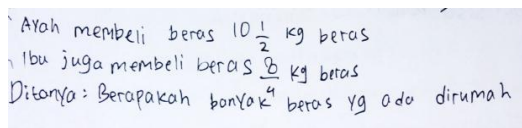 Ayah membeli beras 10 1/2 kg beras
Ibu juga membeli beras 8/4 kg beras
Ditanya : Berapakah banyak beras yg ada dirumah